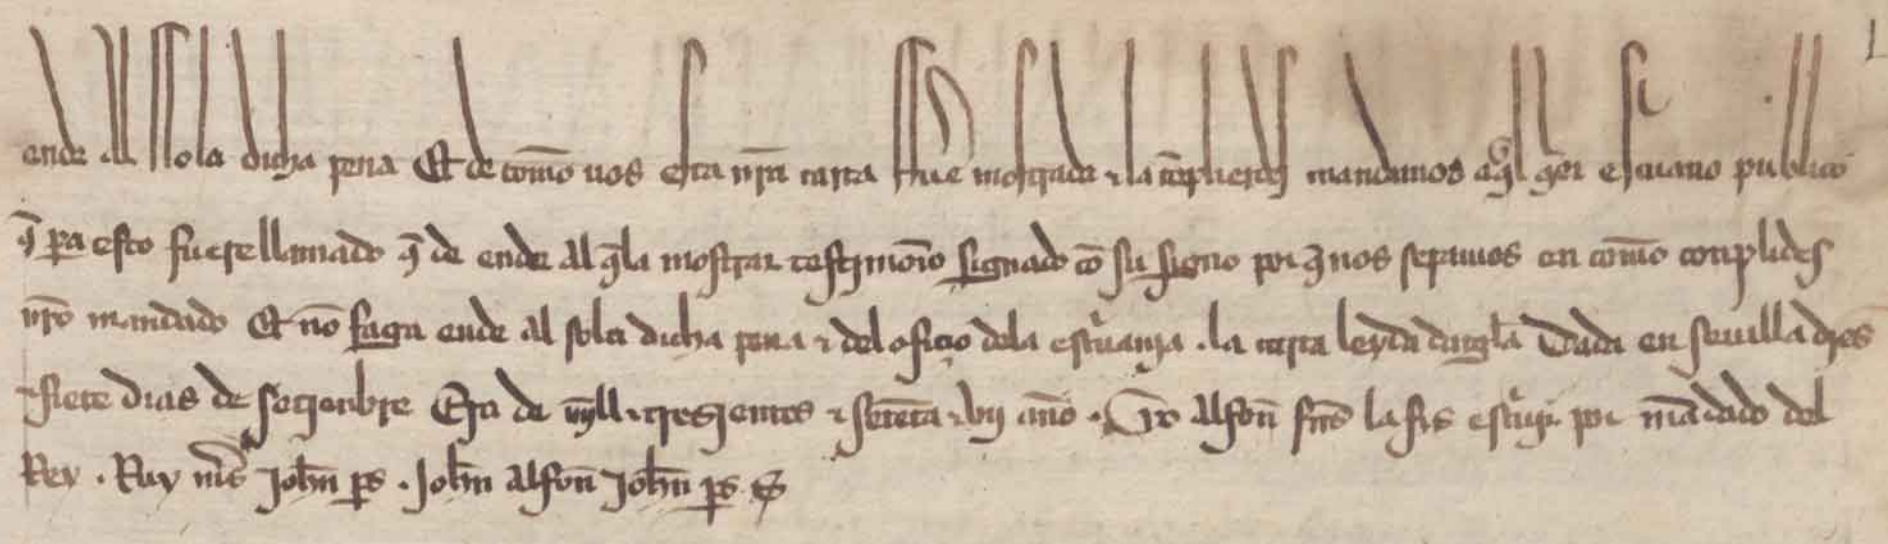 ende al so la dicha pena Et de com̃o uos esta nr̃a carta ffue mostrada ⁊ la cõplierdes mandamos a q̃l q̃er escriuano publico
q̃ pa esto fuere llamado q̃ de ende al q̃ la mostrar testimonio signado cõ su signo por q̃ nos sepamos en com̃o conplides
nr̃o mandado Et nõ faga ende al so la dicha pena ⁊ del ofiçio dela escriuania . la carta leyda datgela Dada en seuilla dies
⁊ siete dias de setienbre Era de mjll ⁊ tresientos ⁊ setẽta ⁊ vij año . Yo alfon ferrs la fis escriuir por mãdado del
Rey . Ruy mr̃s Johñ ps . Johñ alfoñ Johñ ps